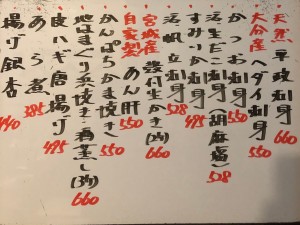 天然 平政刺身
大分産 ヘダイ刺身 550
かつお刺身 550
活生だこ刺身(胡麻塩) 528
すみいか刺身
活帆立刺身 528
宮城産 殻付生かき(2ヶ) 660
自家製 あん肝 550
かんぱちかま焼き 550
地はまぐり浜焼き・酒蒸し(3ヶ) 660
皮ハギ唐揚げ 495
あら煮 385
揚げ銀杏 440